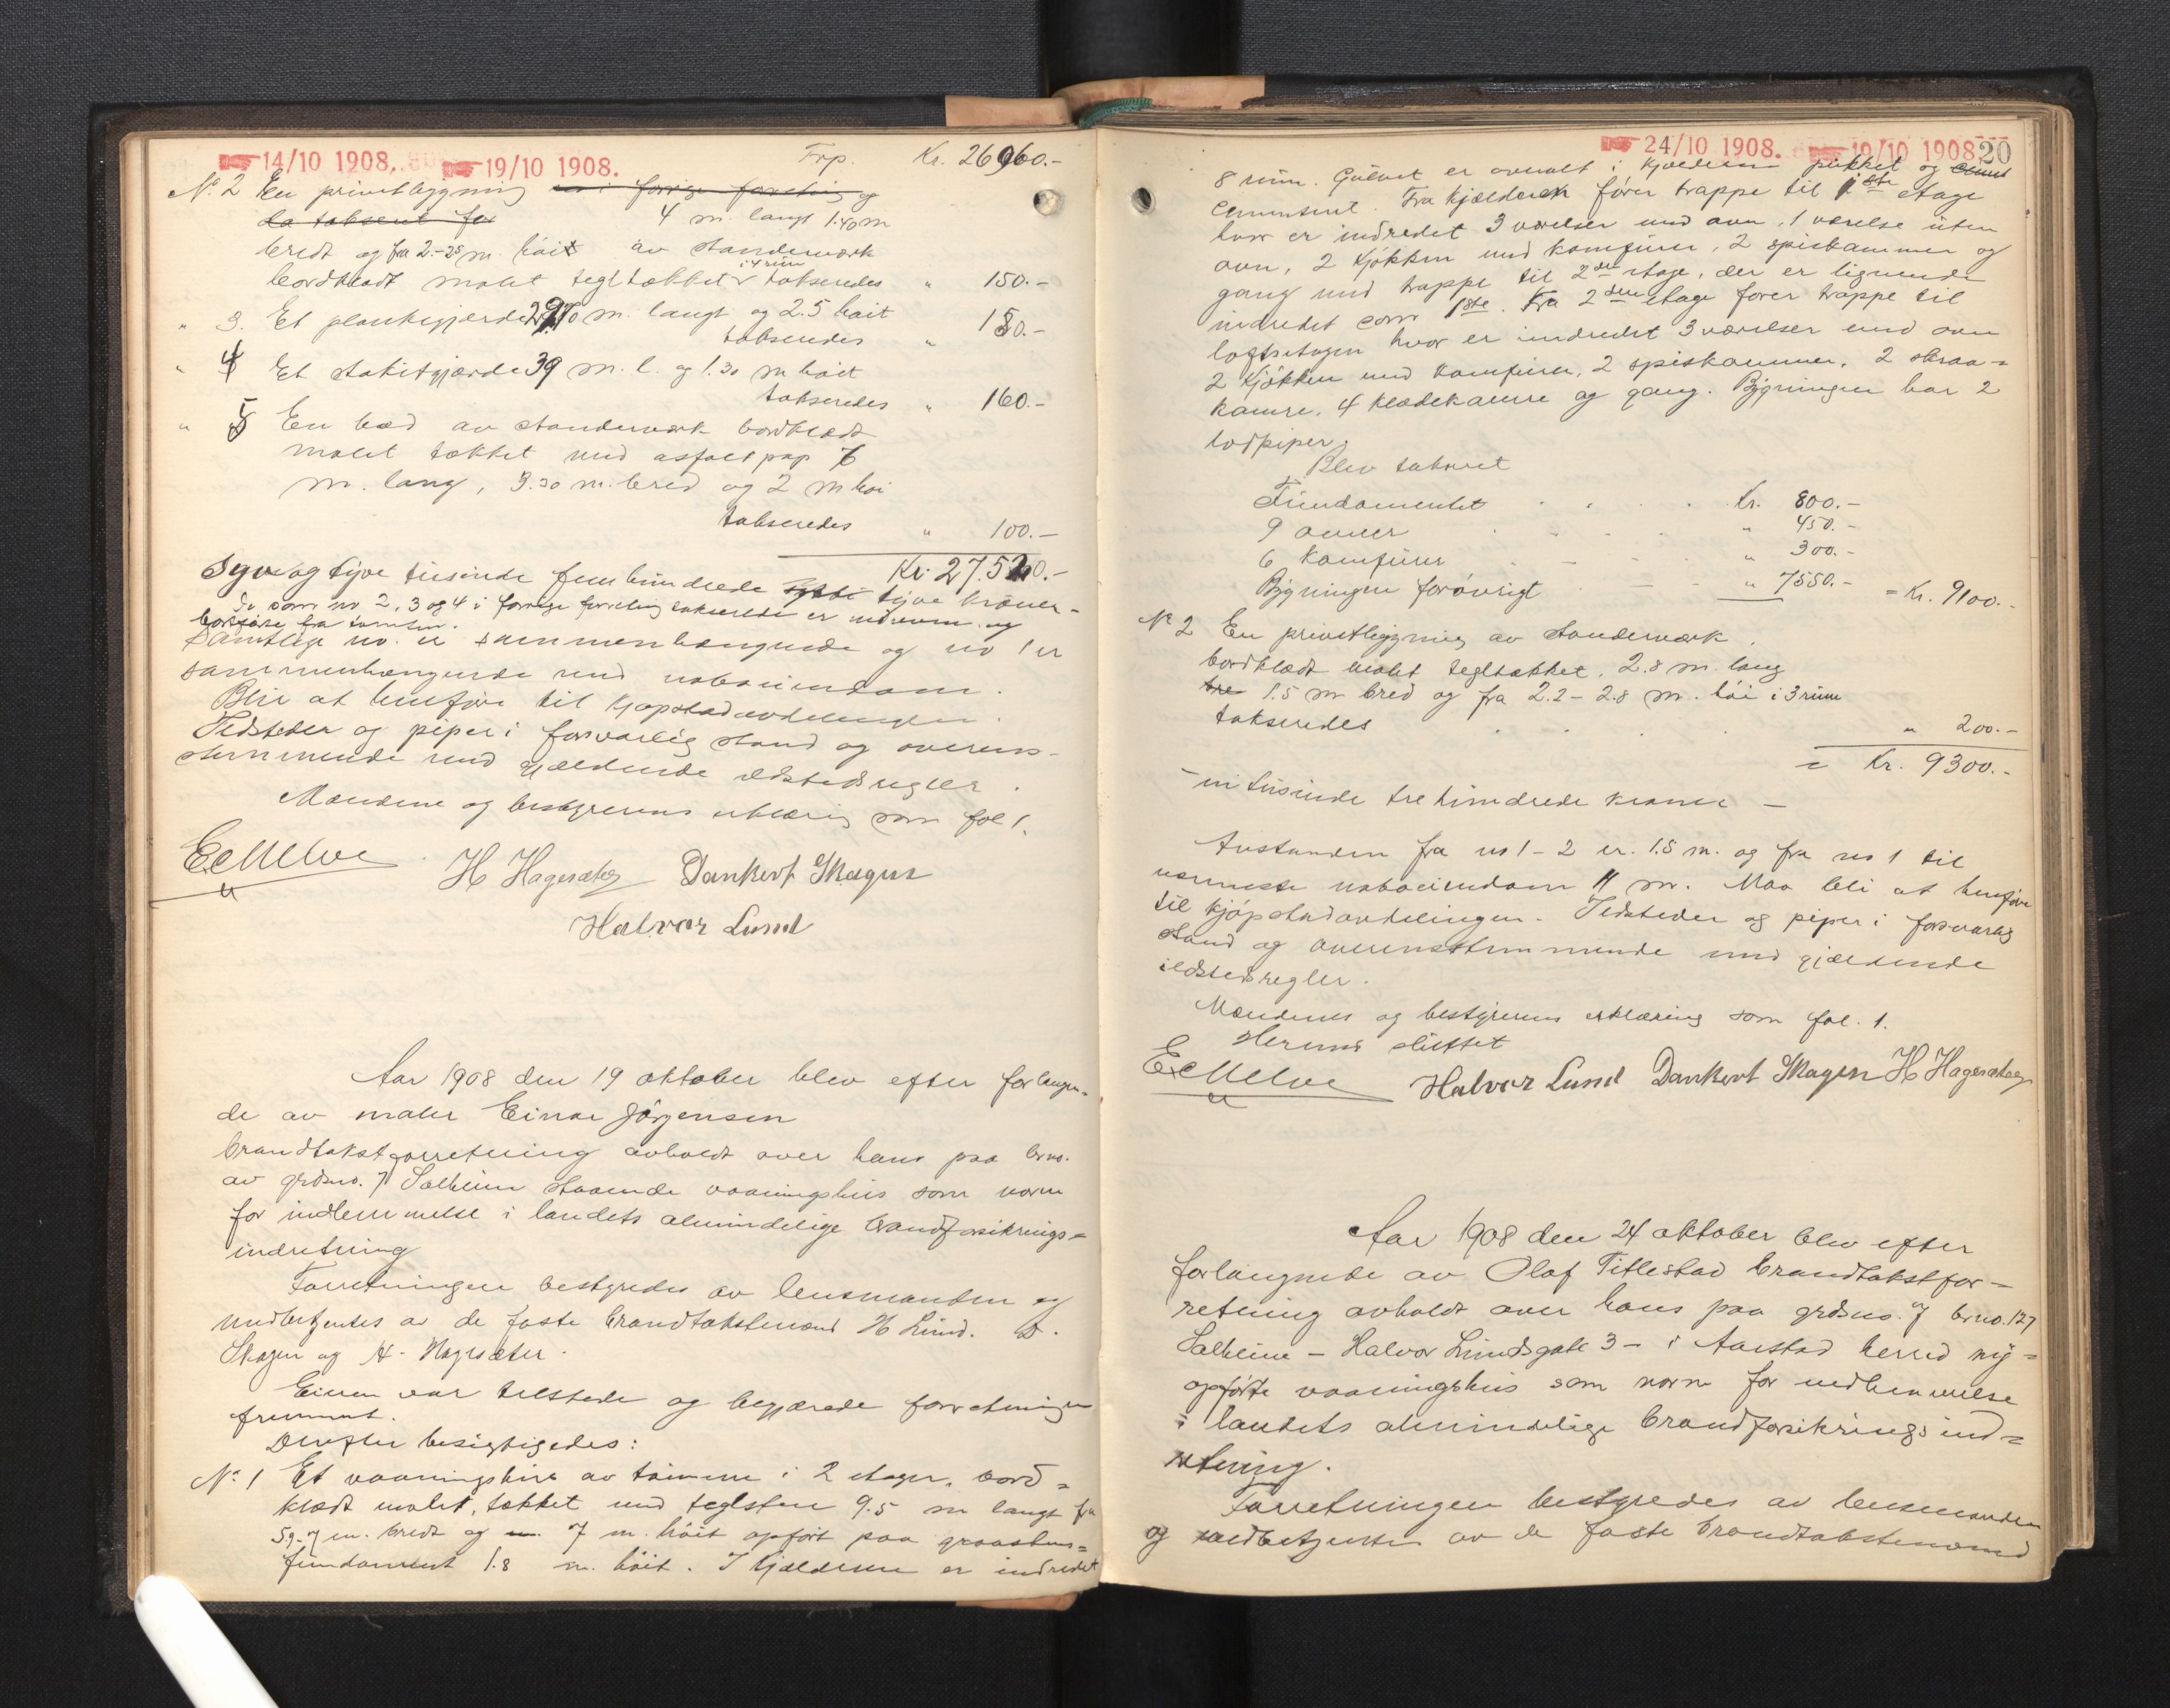 14/10 1908. 19/10 1908.
Trp. Kr. 26960.-
No 2 En privetbygning som i forrige forretning og
da taksert for 4 m. langt 1.40 m
bredt og fra 2.-25 m. høit av standerværk
bordklædt malet tegltækket i 4 rum takseredes " 150.-
" 3. Et plankegjerde 29.70 m. langt og 2.5 høit
takseredes " 150.-
" 4 Et stakitgjærde 39 m. l. og 1.30 m høit
takseredes " 160.-
" 5 En bod av standerværk bordklædt
malet tækket med asfalt pap 6
m. lang, 3.30 m. bred og 2 m høi
takseredes " 100.-
Kr. 27.520.-
Syv og tyve tusinde fem hundrede tyve kroner -
De som no 2, 3 og 4 i forrige forretning takserede er nedrevne og
bortføre fra tomten.
Samtlige no. er sammenhængende og no 1 er
sammenhængende med naboeiendom.
Blir at henføre til kjøpstadavdelingen.
Ildsteder og piper i forsvarlig stand og overens-
stemmende med gjældende ildstedsregler.
Mændene og bestyrerens erklæring som fol 1.
E Melve H Hagesæter Dankert Skagen
Halvor Lund
Aar 1908 den 19 oktober blev efter forlangen-
de av maler Einar Jörgensen
brandtakstforretning avholdt over hans paa brno.
av grdsno. 7 Solheim staaende vaaningshus som norm
for indlemmelse i landets almindelige brandforsikrings-
indretning
Forretningen bestyredes av lensmanden og
medbetjentes av de faste brandtakstmænd H Lund. D.
Skagen og H. Hagesæter.
Eieren var tilstede og begjærede forretningen
fremmet.
Derefter besigtigedes:
No 1 Et vaaningshus av tømmer i 2 etager, bord-
klædt malet, tækket med teglsten 9.5 m langt fra
59-7 m. bredt og 7 m. høit opført paa graastens-
fundament 1.8 m. høit. I kjælderen er indredet
24/10 1908. 19/10 1908 20
8 rum. Gulvet er overalt i kjælderen pukket og
cementeret. Fra kjælderen fører trappe til 1ste etage
hvor er indredet 3 værelser med ovn, 1 værelse uten
ovn, 2 kjøkken med komfurer, 2 spiskammer og
gang med trappe til 2den etage, der er lignende
indredet som 1ste. Fra 2den etage fører trappe til
loftsetagen hvor er indredet 3 værelser med ovn
2 kjøkken med komfurer, 2 spiskammer, 2 skraa-
kamre, 4 klædekamre og gang. Bygningen har 2
lodpiper.
Blev taksert
Fundamentet Kr. 800.-
9 ovner " 450.-
6 komfurer " 300.-
Bygningen forøvrigt " 7550.- = Kr. 9100.-
No 2 En privetbygning av standerværk,
bordklædt malet tegltækket, 2.8 m. lang
bre 1.5 m bred og fra 2.2-2.8 m. høi i 3 rum
takseredes " 200.-
= Kr. 9300.-
- ni tusinde tre hundrede kroner -
Avstanden fra no 1-2 er 1.5 m. og fra no 1 til
nærmeste naboeiendom 11 m. Maa bli at henføre
til kjøpstadavdelingen. Ildsteder og piper i forsvarlig
stand og overensstemmende med gjældende
ildstedsregler.
Mændenes og bestyrerens erklæring som fol. 1.
Hermed sluttet
E Melve Halvor Lund Dankert Skagen H Hagesæter
Aar 1908 den 24 oktober blev efter
forlangende av Olaf Titlestad brandtakstfor-
retning avholdt over hans paa grdsno. 7 brno. 127
Solheim - Halvor Lundsgate 3 - i Aarstad herred ny-
opførte vaaningshus som norm for indlemmelse
i landets almindelige brandforsikringsind-
retning.
Forretningen bestyredes av lensmanden
og medbetjentes av de faste brandtakstmænd